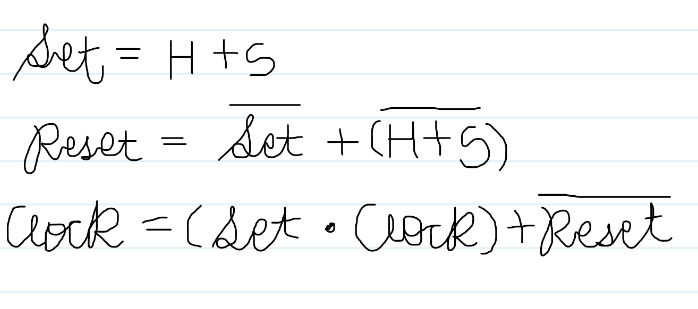 Set = H + S
Reset = \overline{Set} + \overline{(H+S)}
Clock = (Set · Clock) + \overline{Reset}